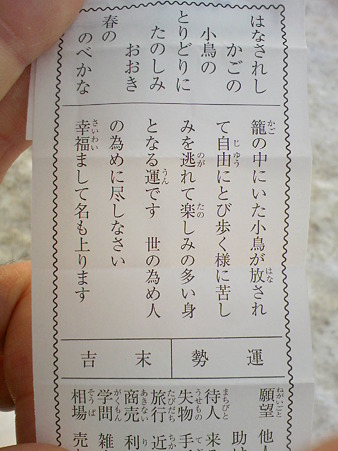 はなされし
かごの
小鳥の
とりどりに
たのしみ
おおき
春の
のべかな
籠の中にいた小鳥が放され
て自由にとび歩く様に苦し
みを逃れて楽しみの多い身
となる運です 世の為め人
の為めに尽しなさい
幸福まして名も上ります
運勢
末吉
願望 他人
助け
待人 来る
失物 手
旅行 近
商売 利
学問 雑
相場 売